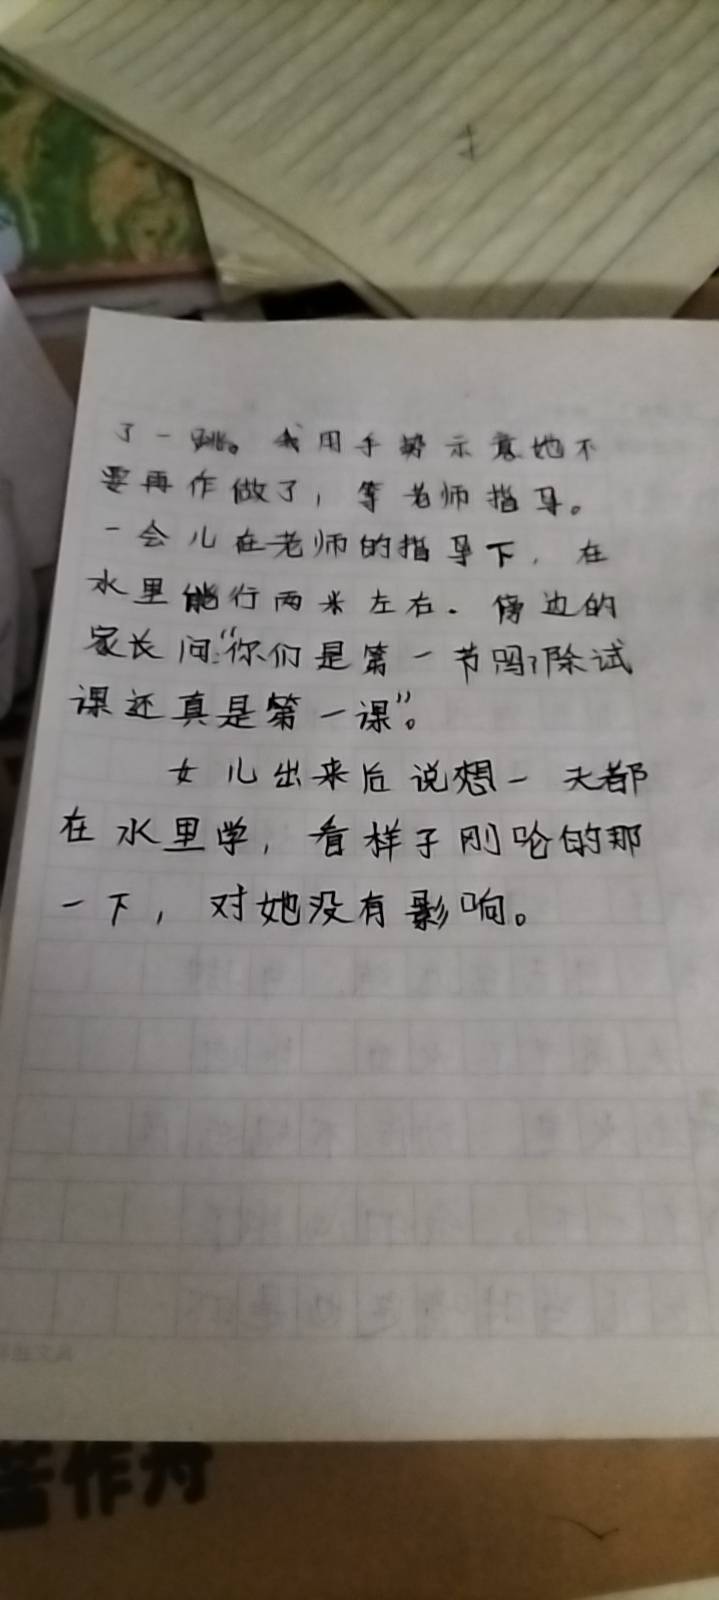 了一跳。我用手势示意她不
要再作做了，等老师指导。
一会儿在老师的指导下，在
水里能行两米左右。傍边的
家长问：“你们是第一节吗？除试
课还真是第一课”。
女儿出来后说想一天都
在水里学，看样子刚呛的那
一下，对她没有影响。
作舟